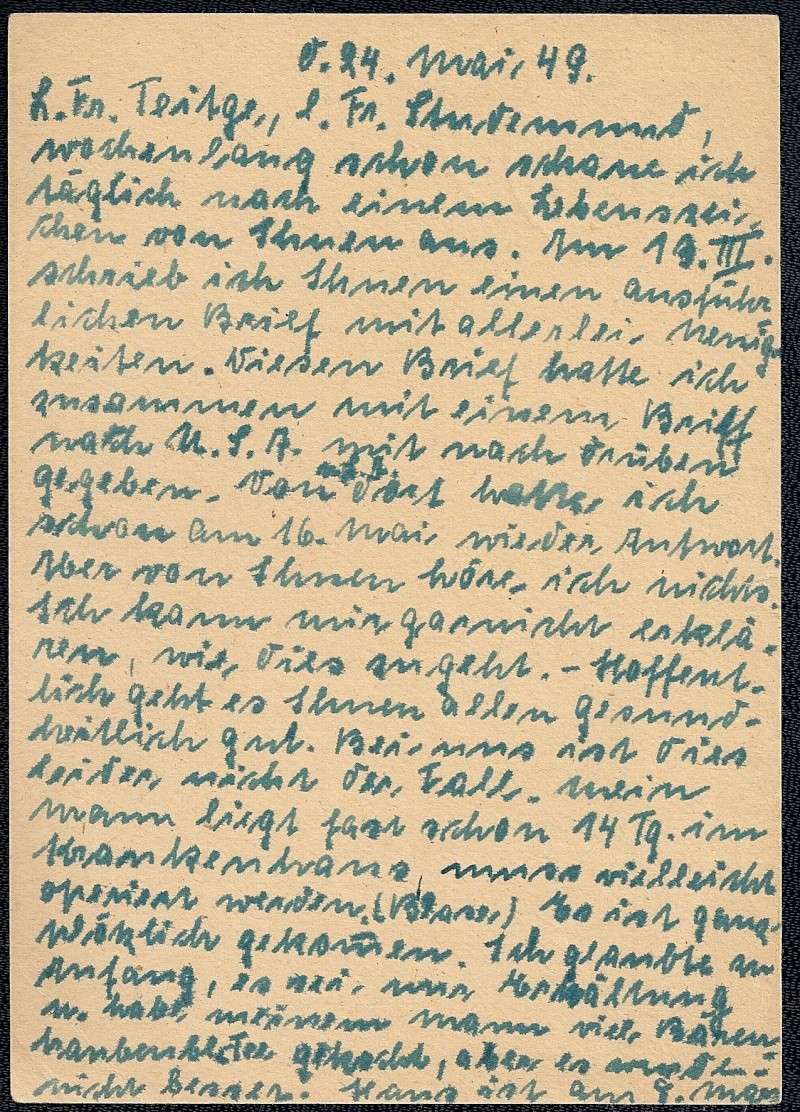 d. 24. Mai 49.
L. Fr. Teitge, l. Fr. Studemund,
wochenlang schon schaue ich
täglich nach einem Lebenszei-
chen von Ihnen aus. Am 19. III.
schrieb ich Ihnen einen ausführ
lichen Brief mit allerlei Neuig-
keiten. Diesen Brief hatte ich
zusammen mit einem Brief
nach U.S.A. mit nach drüben
gegeben. Von dort hatte ich
schon am 16. Mai wieder Antwort.
Aber von Ihnen höre ich nichts.
Ich kann mir garnicht erklä-
ren, wie dies zugeht. - Hoffent-
lich geht es Ihnen allen gesund-
heitlich gut. Bei uns ist dies
leider nicht der Fall. Mein
Mann liegt fast schon 14 Tg. im
Krankenhaus, muss vielleicht
operiert werden. (Blase) Es ist ganz
plötzlich gekommen. Ich glaubte zu
Anfang, es sei nur Erkältung
u. habe meinem Mann viel Bären-
traubenbl. Tee gekocht, aber es wurde
nicht besser. Hans ist am 9. Mai